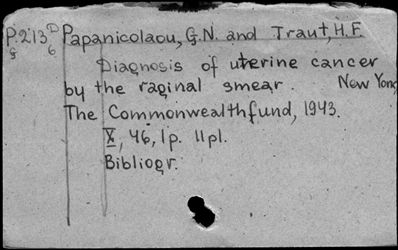 P.213 D/6 Papanicolaou, G.N. and Traut, H.F.
G
Diagnosis of uterine cancer
by the raginal smear. New York
The Commonwealthfund, 1943.
X, 46, 1p. 11pl.
Bibliogr.